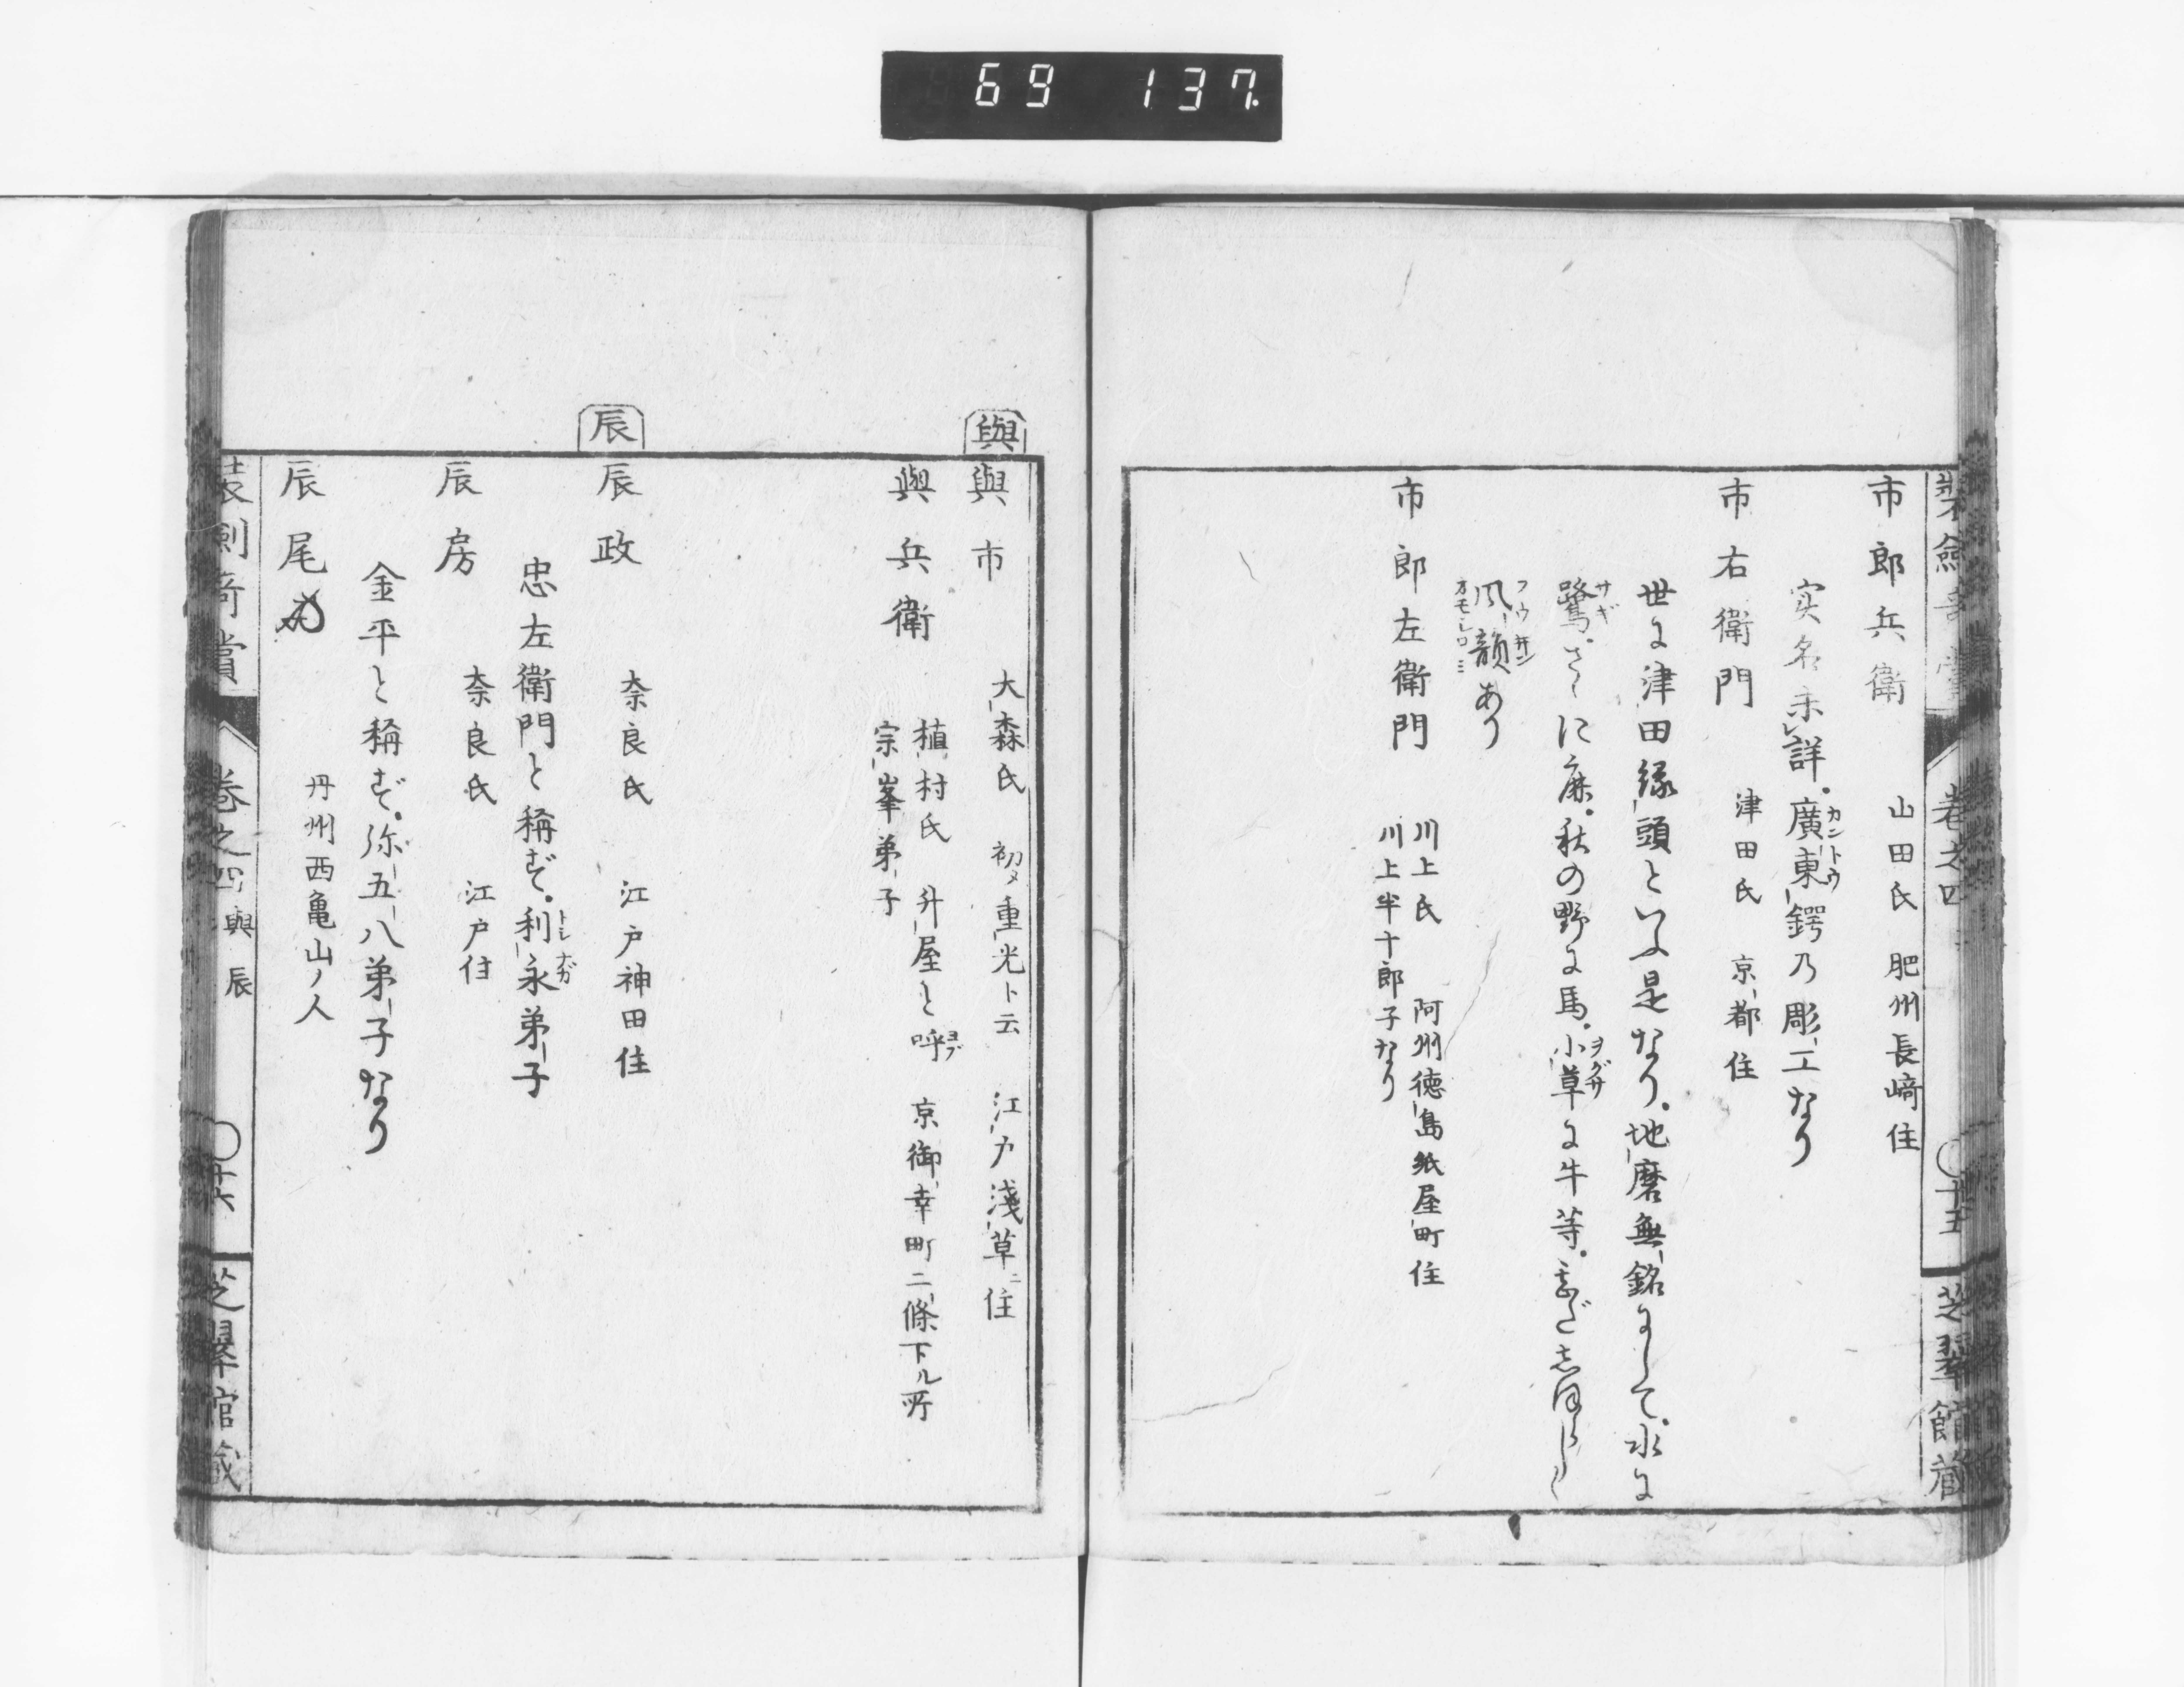 69 137
市郎兵衛 山田氏 肥州長﨑住
実名未詳。廣東鍔乃彫工なり
カントウ
市右衛門 津田氏 京都住
世に津田縁頭といふ是なり。地磨無銘にして。水に
鷺。さゝに麻。秋の野に馬。小草に牛等。
サギ
ヲグサ
風韻あり
フウ井ン
オモシロミ
市郎左衛門 川上氏 阿州徳島紙屋町住
川上半十郎子なり
裝劍奇賞 巻之四 十五 芝翠館藏
與
與市 大森氏 初メ重光ト云 江户淺草ニ住
與兵衛 植村氏 升屋と呼 京御幸町二條下ル所
ヨブ
宗峯弟子
辰
辰政 奈良氏 江戸神田住
忠左衛門と稱す。利永弟子
トシナガ
辰房 奈良氏 江戸住
金平と稱す。弥五八弟子なり
辰尾 丹州西亀山ノ人
裝劍奇賞 巻之四 與 辰 十六 芝翠館藏